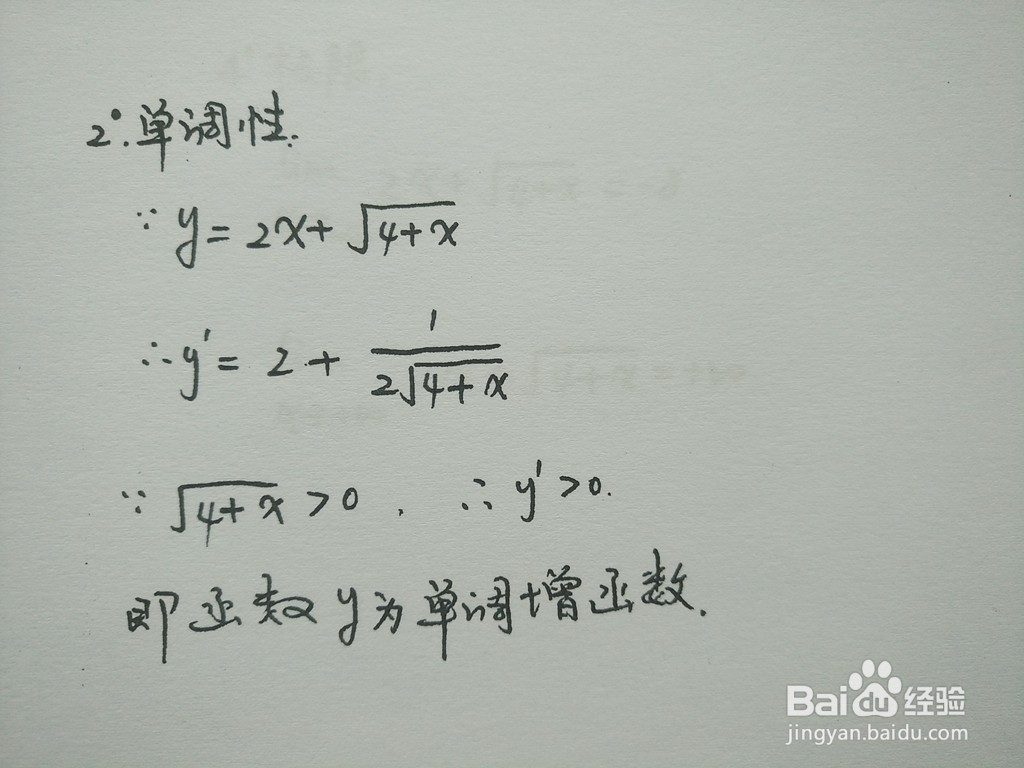 2°.单调性.
∵ y = 2x + √(4+x)
∴ y' = 2 + 1/(2√(4+x))
∵ √(4+x) > 0 . ∴ y' > 0.
即函数 y 为单调增函数.
Baidu 经验
jingyan.baidu.com